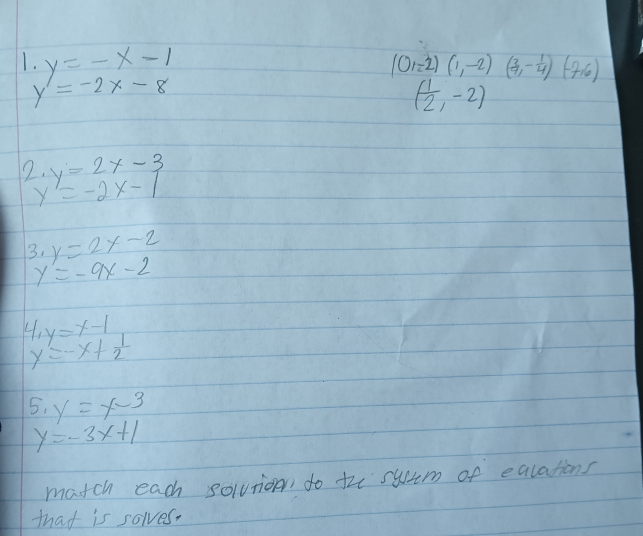 1. y = -x - 1
y = -2x - 8
(0,-2) (1,-2) (3/4,-1/4) (-7,6)
(1/2, -2)
2. y = 2x - 3
y = -2x - 1
3. y = 2x - 2
y = -9x - 2
4. y = x - 1
y = -x + 1/2
5. y = x - 3
y = -3x + 1
match each solution to the system of equations
that is solves.